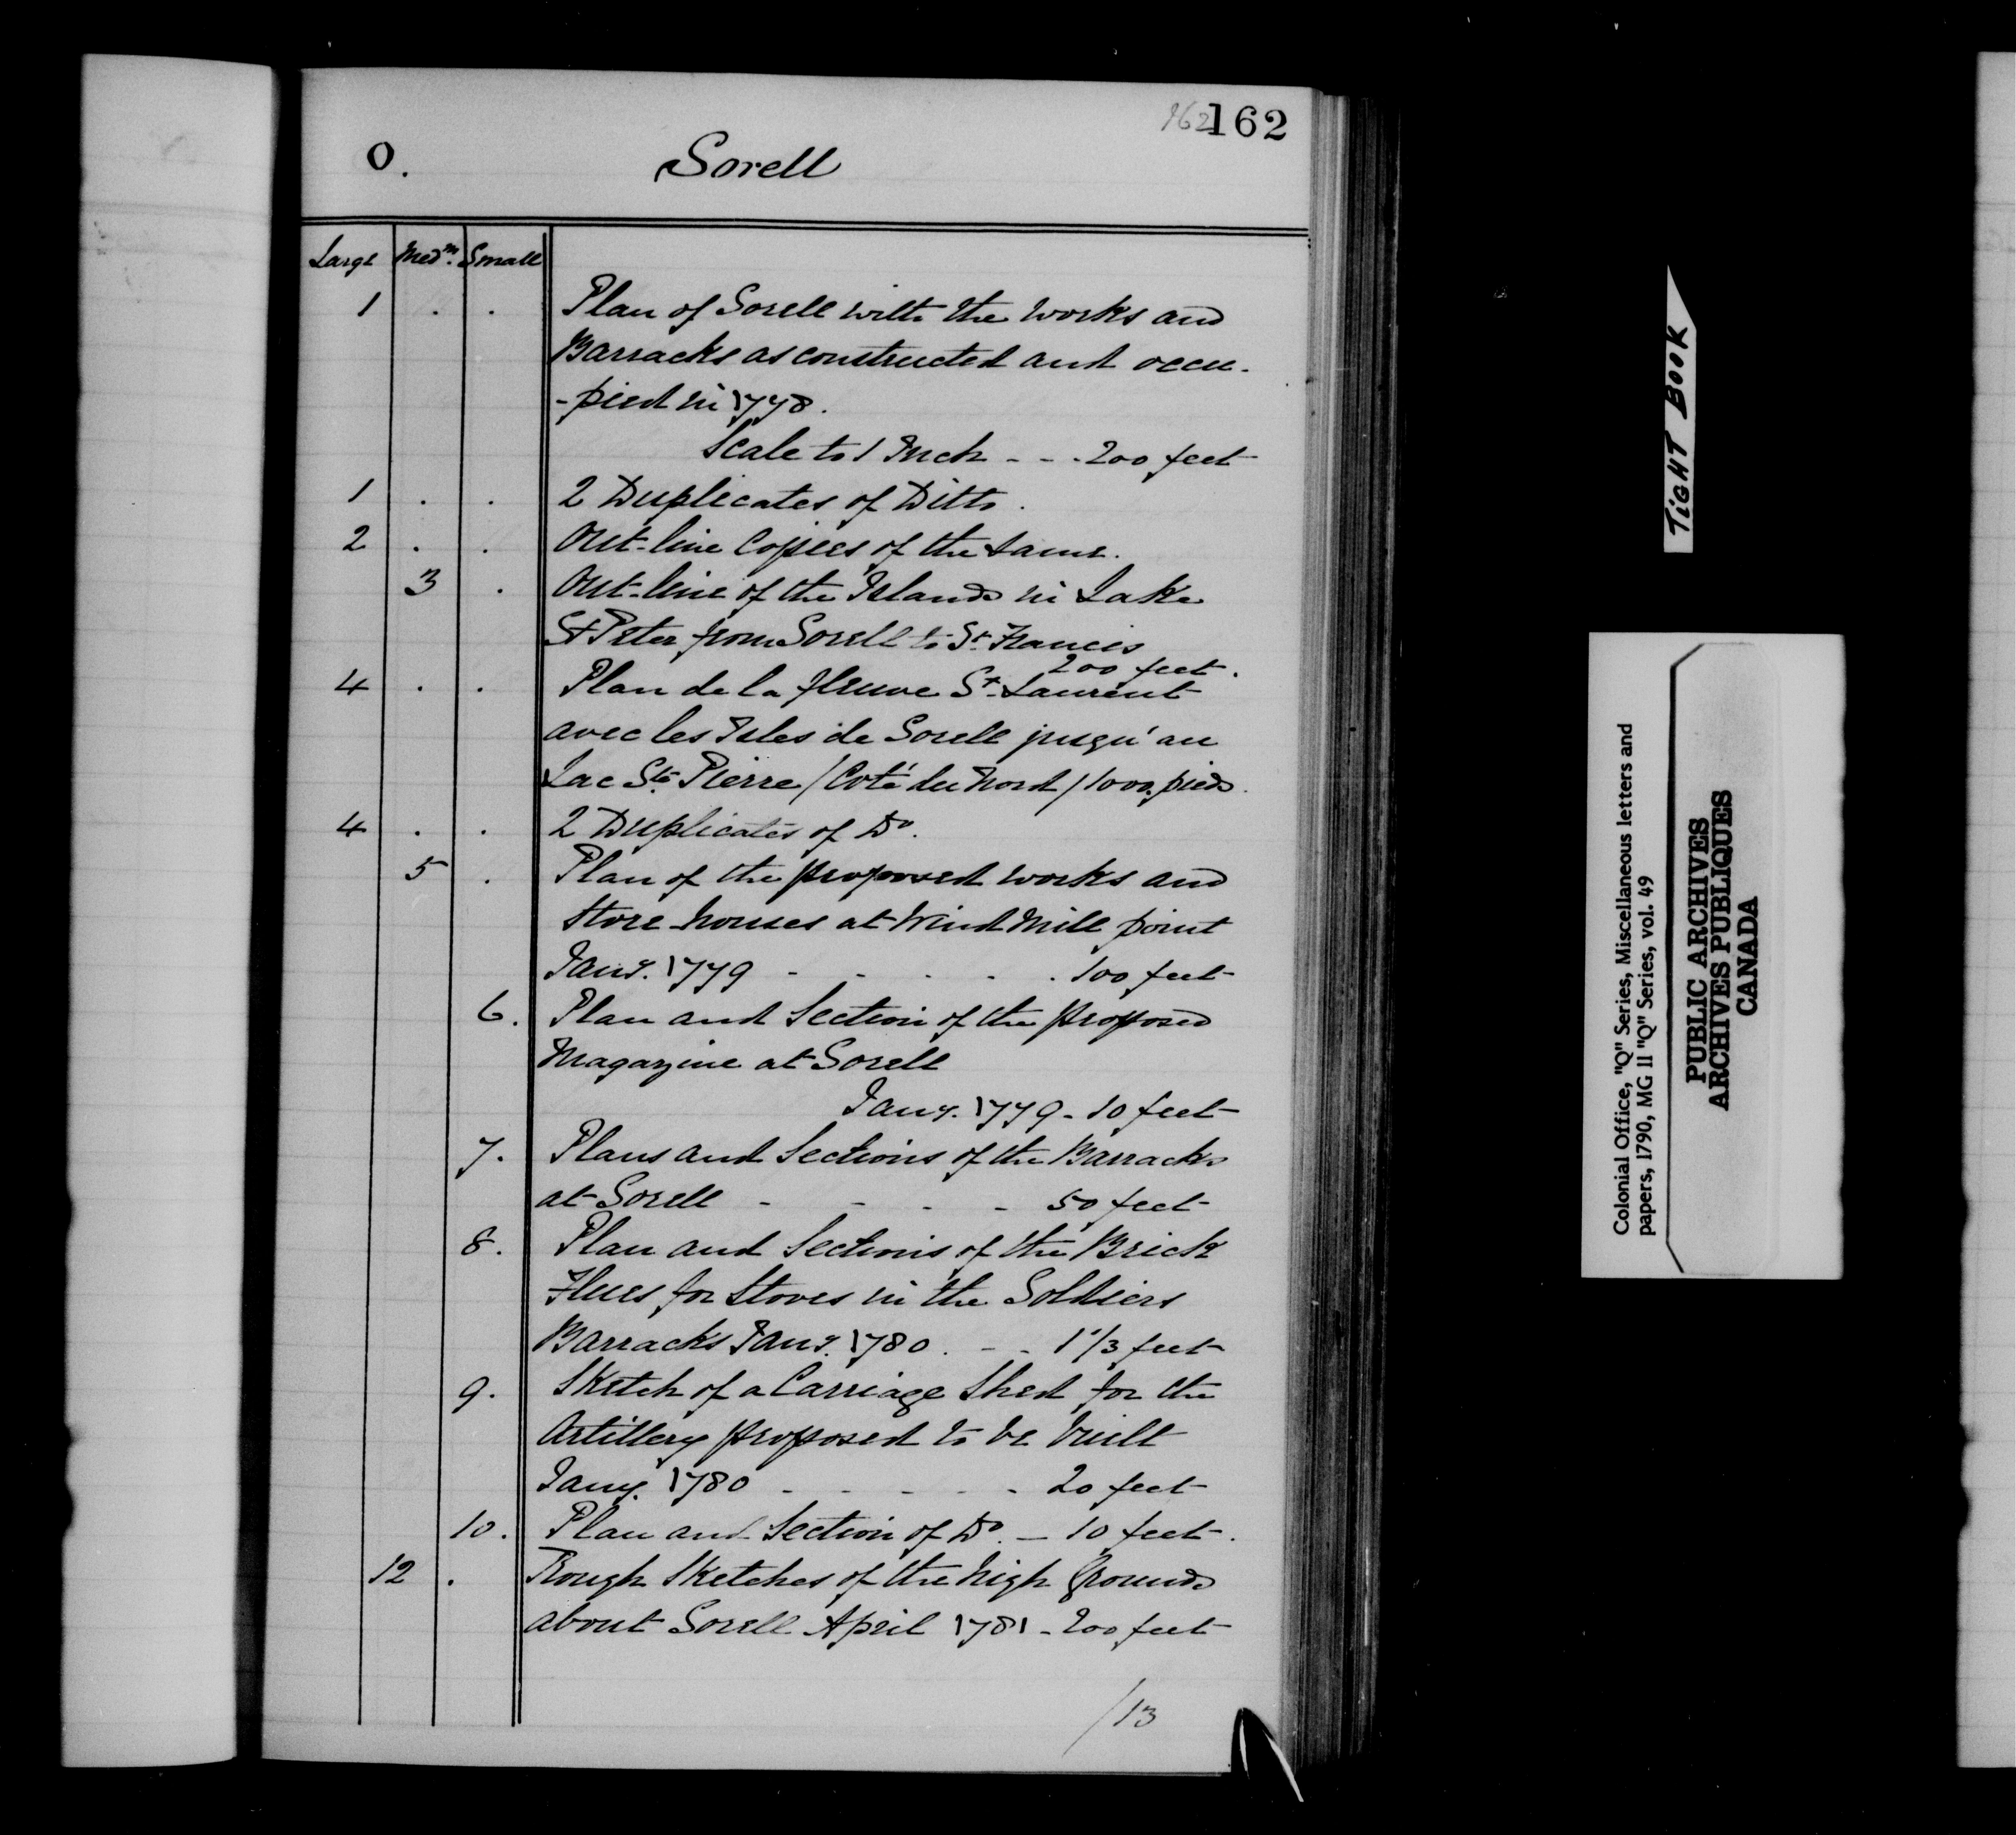 162 162
O. Sorell
Large Medm. Small
1 . . Plan of Sorell with the works and
Barracks as constructed and occu-
-pied in 1778.
Scale to 1 Inch - - - 200 feet
1 . . 2 Duplicates of Ditto.
2 . . Out-line Copies of the same.
3 . Out-line of the Islands in Lake
St Peter from Sorell to St. Francis
200 feet.
4 . . Plan de la fleuve St. Laurent
avec les Isles de Sorell jusqu'au
Lac St. Pierre / Coté du Nord / 1000. pieds.
4 . . 2 Duplicates of Do.
5 . Plan of the proposed works and
Store houses at Wind Mill point
Jany. 1779 - - - - - 100 feet
6. Plan and Section of the proposed
Magazine at Sorell
Jany. 1779 - 10 feet
7. Plans and Sections of the Barracks
at Sorell - - - - 50 feet
8. Plan and Sections of the Brick
Flues for Stoves in the Soldiers
Barracks Jany. 1780. - - 1 1/3 feet
9. Sketch of a Carriage Shed for the
Artillery proposed to be built
Jany. 1780 - - - - - 20 feet
10. Plan and Section of Do. - 10 feet.
12 . Rough Sketches of the high Grounds
about Sorell April 1781 - 200 feet
/13
TIGHT BOOK
Colonial Office, "Q" Series, Miscellaneous letters and
papers, 1790, MG 11 "Q" Series, vol. 49
PUBLIC ARCHIVES
ARCHIVES PUBLIQUES
CANADA